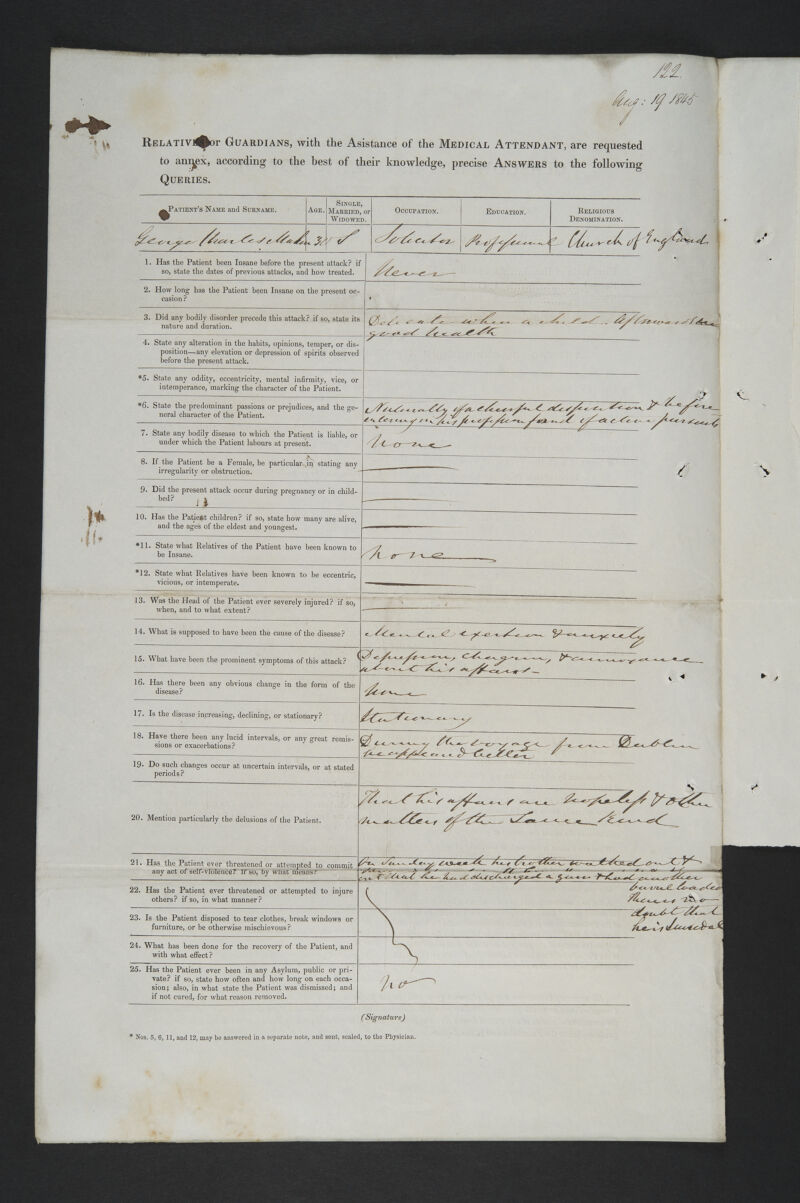 122
Aug: 19 1845
RELATIVES or GUARDIANS, with the Asistance of the MEDICAL ATTENDANT, are requested
to annex, according to the best of their knowledge, precise ANSWERS to the following
QUERIES.
PATIENT'S NAME and SURNAME.
AGE.
SINGLE,
MARRIED, or
WIDOWED.
OCCUPATION.
EDUCATION.
RELIGIOUS
DENOMINATION.
George Charles S Solicitor Professional Church of England
1. Has the Patient been Insane before the present attack? if
so, state the dates of previous attacks, and how treated.
Never
2. How long has the Patient been Insane on the present oc-
casion?
3. Did any bodily disorder precede this attack? if so, state its
nature and duration.
Delicate when a child. Afterwards
good health
4. State any alteration in the habits, opinions, temper, or dis-
position—any elevation or depression of spirits observed
before the present attack.
*5. State any oddity, eccentricity, mental infirmity, vice, or
intemperance, marking the character of the Patient.
*6. State the predominant passions or prejudices, and the ge-
neral character of the Patient.
Naturally of a cheerful disposition & before
entering on his profession fond of active pursuits
7. State any bodily disease to which the Patient is liable, or
under which the Patient labours at present.
None
8. If the Patient be a Female, be particular in stating any
irregularity or obstruction.
9. Did the present attack occur during pregnancy or in child-
bed?
10. Has the Patient children? if so, state how many are alive,
and the ages of the eldest and youngest.
*11. State what Relatives of the Patient have been known to
be Insane.
None
*12. State what Relatives have been known to be eccentric,
vicious, or intemperate.
13. Was the Head of the Patient ever severely injured? if so,
when, and to what extent?
14. What is supposed to have been the cause of the disease?
Mental exertion & anxiety
15. What have been the prominent symptoms of this attack?
Depression, chagrin, & annoyance
about his affairs
16. Has there been any obvious change in the form of the
disease?
None
17. Is the disease increasing, declining, or stationary?
Stationary
18. Have there been any lucid intervals, or any great remis-
sions or exacerbations?
During the voyage from Dublin
he appeared better
19. Do such changes occur at uncertain intervals, or at stated
periods?
20. Mention particularly the delusions of the Patient.
That his affairs are hopeless & other
matters of the same kind
21. Has the Patient ever threatened or attempted to commit
any act of self-violence? If so, by what means?
On Sunday week his brother walked out &
that he had discharged a gun & had another
barrel loaded
There is no
doubt that
he is suicidal
22. Has the Patient ever threatened or attempted to injure
others? if so, in what manner?
23. Is the Patient disposed to tear clothes, break windows or
furniture, or be otherwise mischievous?
24. What has been done for the recovery of the Patient, and
with what effect?
25. Has the Patient ever been in any Asylum, public or pri-
vate? if so, state how often and how long on each occa-
sion; also, in what state the Patient was dismissed; and
if not cured, for what reason removed.
No
(Signature)
* Nos. 5, 6, 11, and 12, may be answered in a separate note, and sent, sealed, to the Physician.